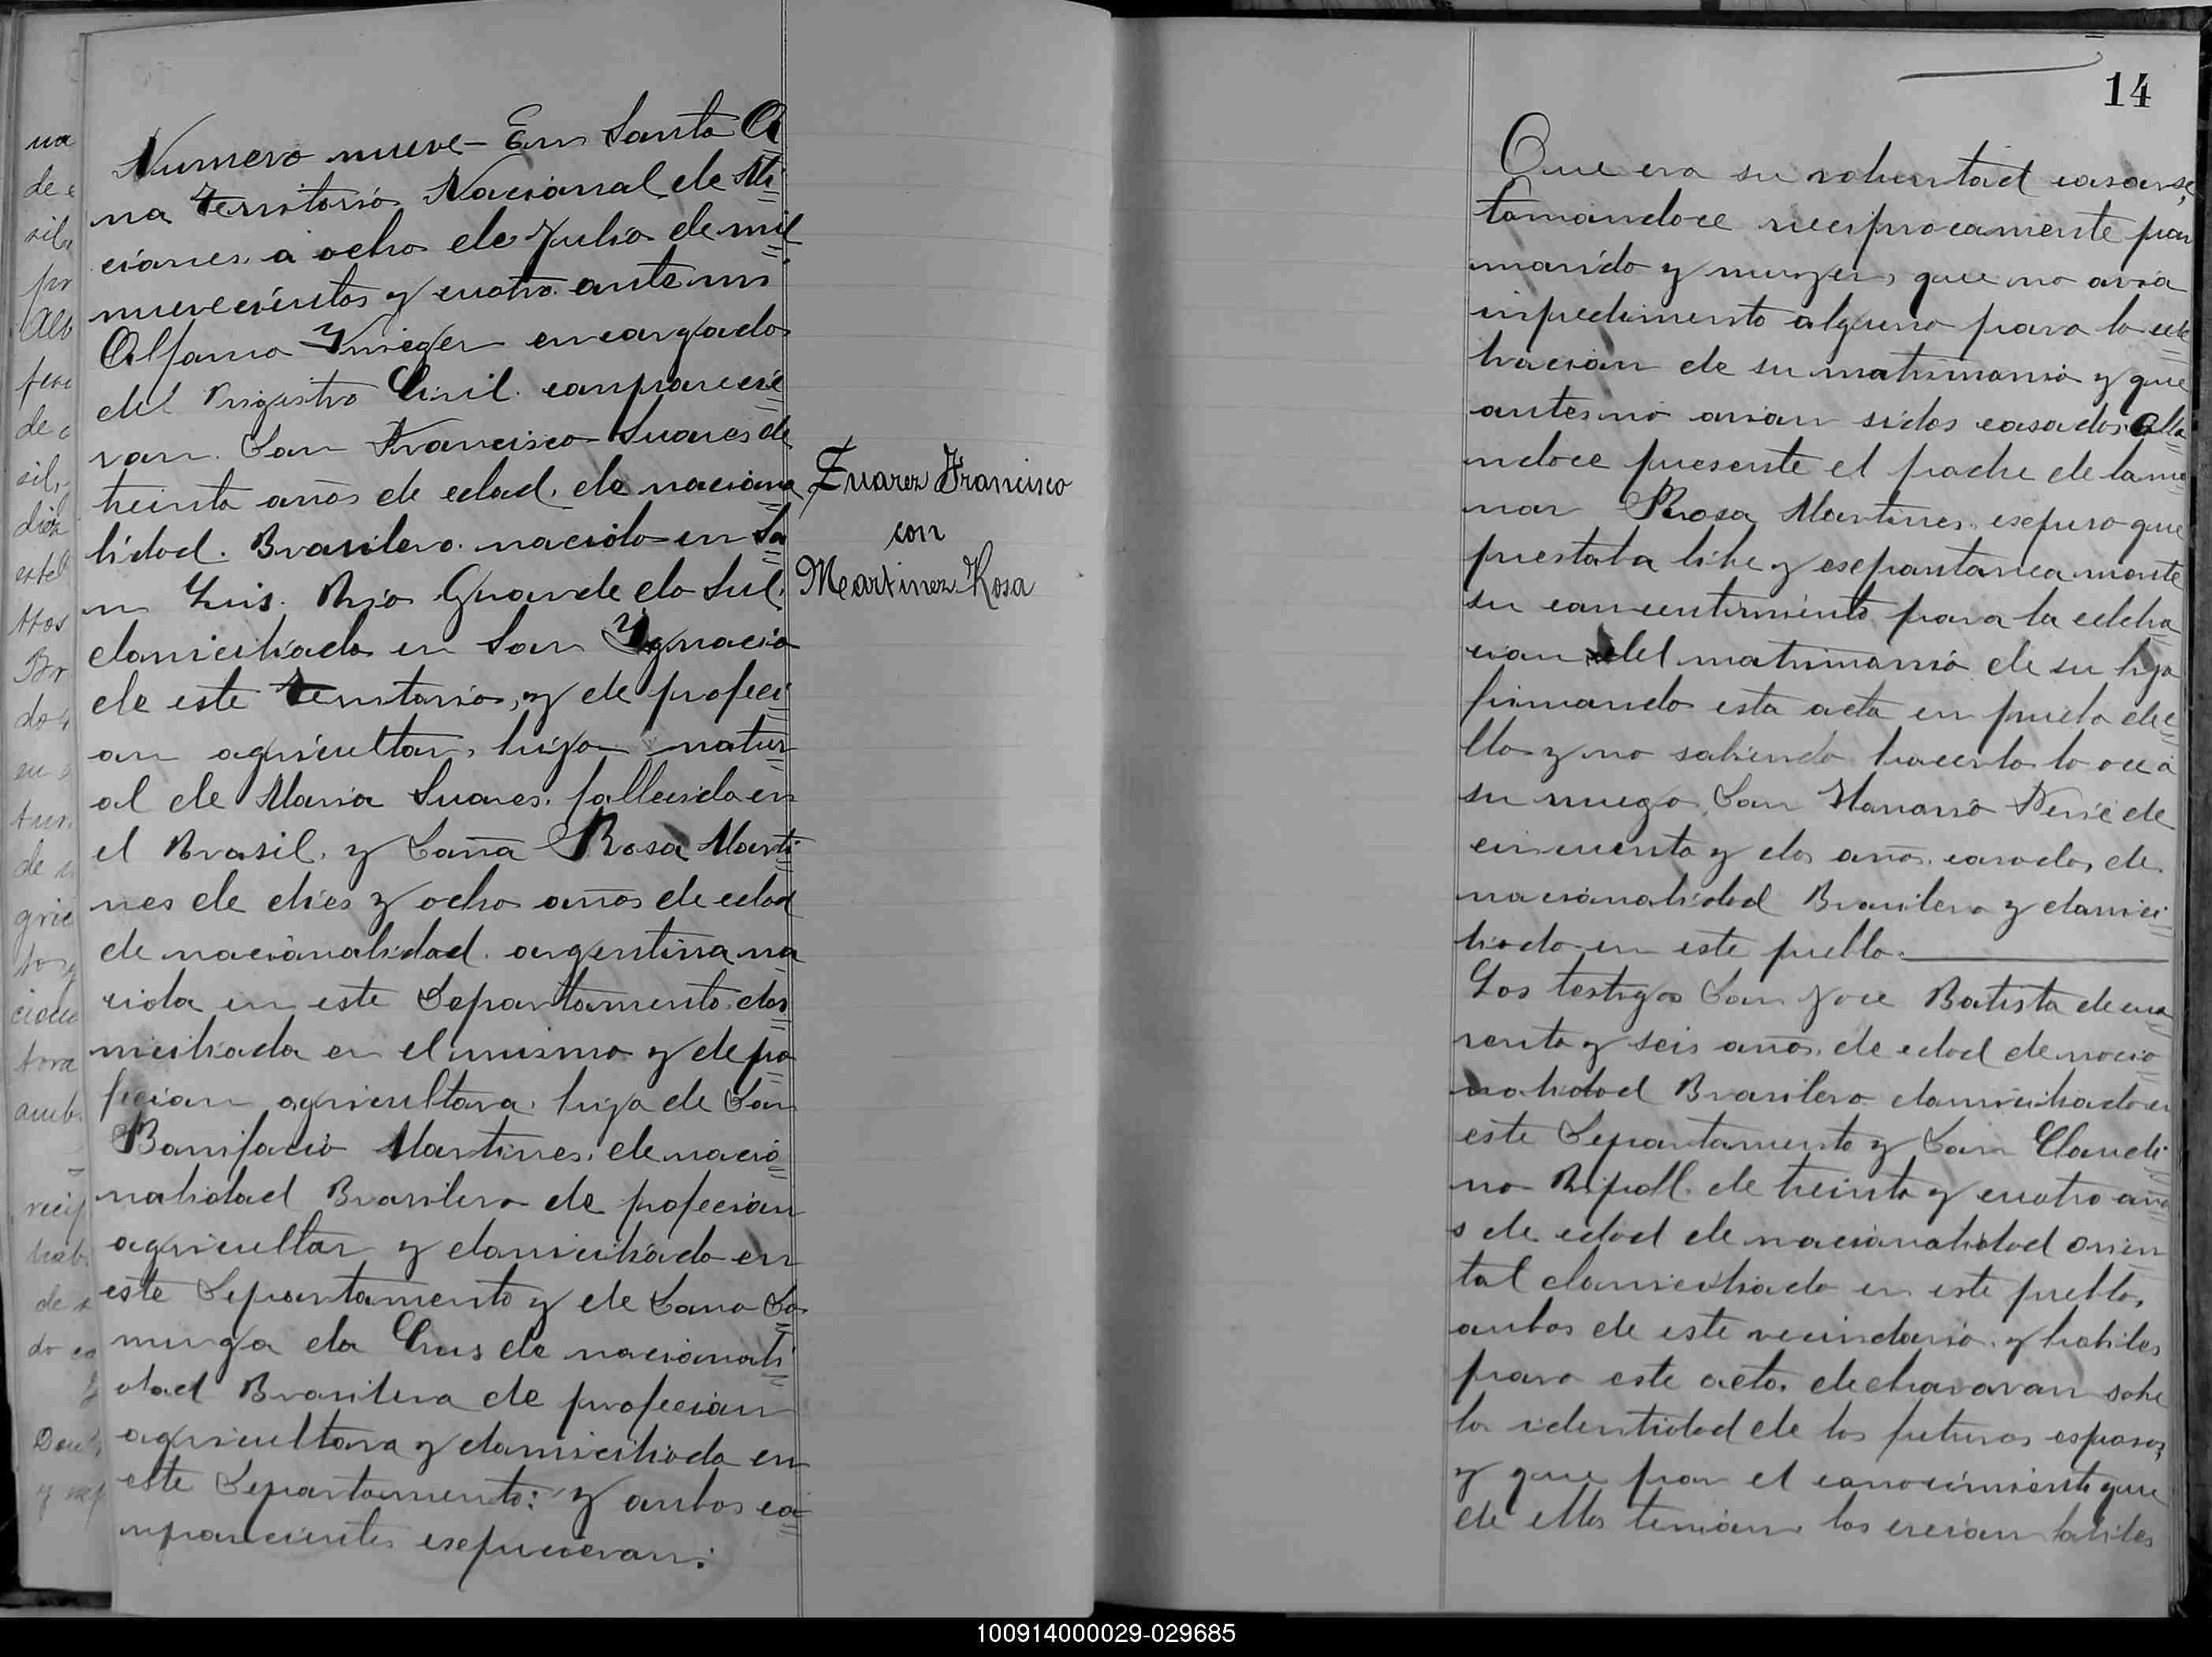 Numero nueve - En Santa A
na Territorio Nacional de Mi
ciones, a ocho de Julio de mil
nuevecientos y cuatro ante mi
Alfonso encargado
del Registro Civil. conparecie
ron. Don Francisco Suares de
treinta años de edad, de naciona
lidad. Brasilero. nacido en Sa
n Luis. Rio Grande do Sul.
domiciliado en San Ygnacio
de este Territorio, y de profeci
on agricultor, hijo natur
al de Maria Suares. fallecida en
el Brasil, y Doña Rosa Marti
nes de dies y ocho años de edad
de nacionalidad argentina na
cida en este Departamento do
miciliada en el mismo y de pro
fecion agricultora, hija de Don
Bonifacio Martines, de nacio
nalidad Brasilero de profecion
agricultor y domiciliado en
este Departamento y de Dona Do
minga da Crus de nacionali
dad Brasilera de profecion
agricultora y domiciliada en
este Departamento: y anbos co
nparecientes esepucieron:
Zuarez Francisco
con
Martinez Rosa
14
Que era su voluntad casarse,
tomandoce reciprocamente por
marido y muger, que no avia
inpedimento alguno para la cele
bracion de su matrimonio y que
antes no avian sidos casados. Alla
ndoce presente el padre de la me
nor Rosa Martines esepuso que
prestaba libre y esepontanea mente
su concentimiento para la celebra
cion del matrimonio de su hija
firmando esta acta en prueba de e
llo y no sabiendo hacerlo lo ace a
su ruego Don de
cincuenta y dos años. casado, de
nacionalidad Brasilero y domici
liado en este pueblo.
Los testigos Don Joce Batista de cua
renta y seis años. de edad de nacio
nalidad Brasilero domiciliado en
este Departamento y Don Claudi
no Ripoll. de treinta y cuatro año
s de edad de nacionalidad orien
tal domiciliado en este pueblo,
anbos de este vecindario. y habiles
para este acto. declararon sobre
la identidad de los futuros esposos,
y que por el conocimiento que
de ellos tenian. los creian habiles
100914000029-029685